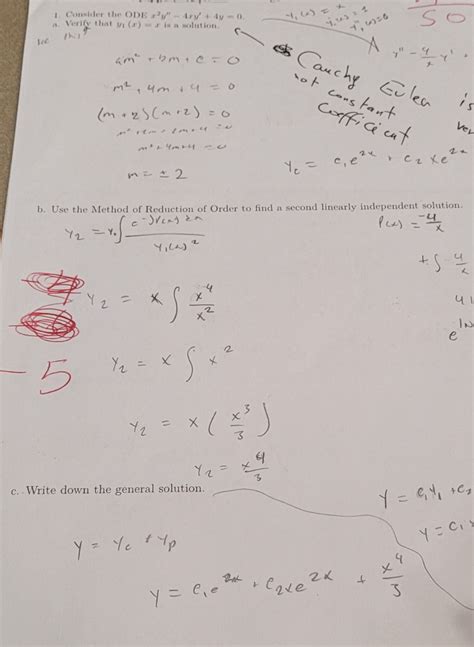 1. Consider the ODE x²y″ − 4xy′ + 4y = 0.
a. Verify that y₁(x) = x is a solution.
y₁(x) = x
y″ − 4/x y′
50
am² + bm + c = 0
m² + 4m + 4 = 0
(m + 2)(m + 2) = 0
m² + 2m + 2m + 4 = 0
m² + 4m + 4 = 0
m = ± 2
Cauchy Euler is
not constant
coefficient
y_c = c₁e^{2x} + c₂xe^{2x}
b. Use the Method of Reduction of Order to find a second linearly independent solution.
P(x) = −4/x
+∫ 4/x
y₂ = x ∫ x⁴/x²
y₂ = x ∫ x²
− 5
y₂ = x ( x³/3 )
y₂ = x⁴/3
c. Write down the general solution.
y = c₁y₁ + c₂
y = c₁
y = y_c + y_p
y = c₁e^{2x} + c₂xe^{2x} + x⁴/3